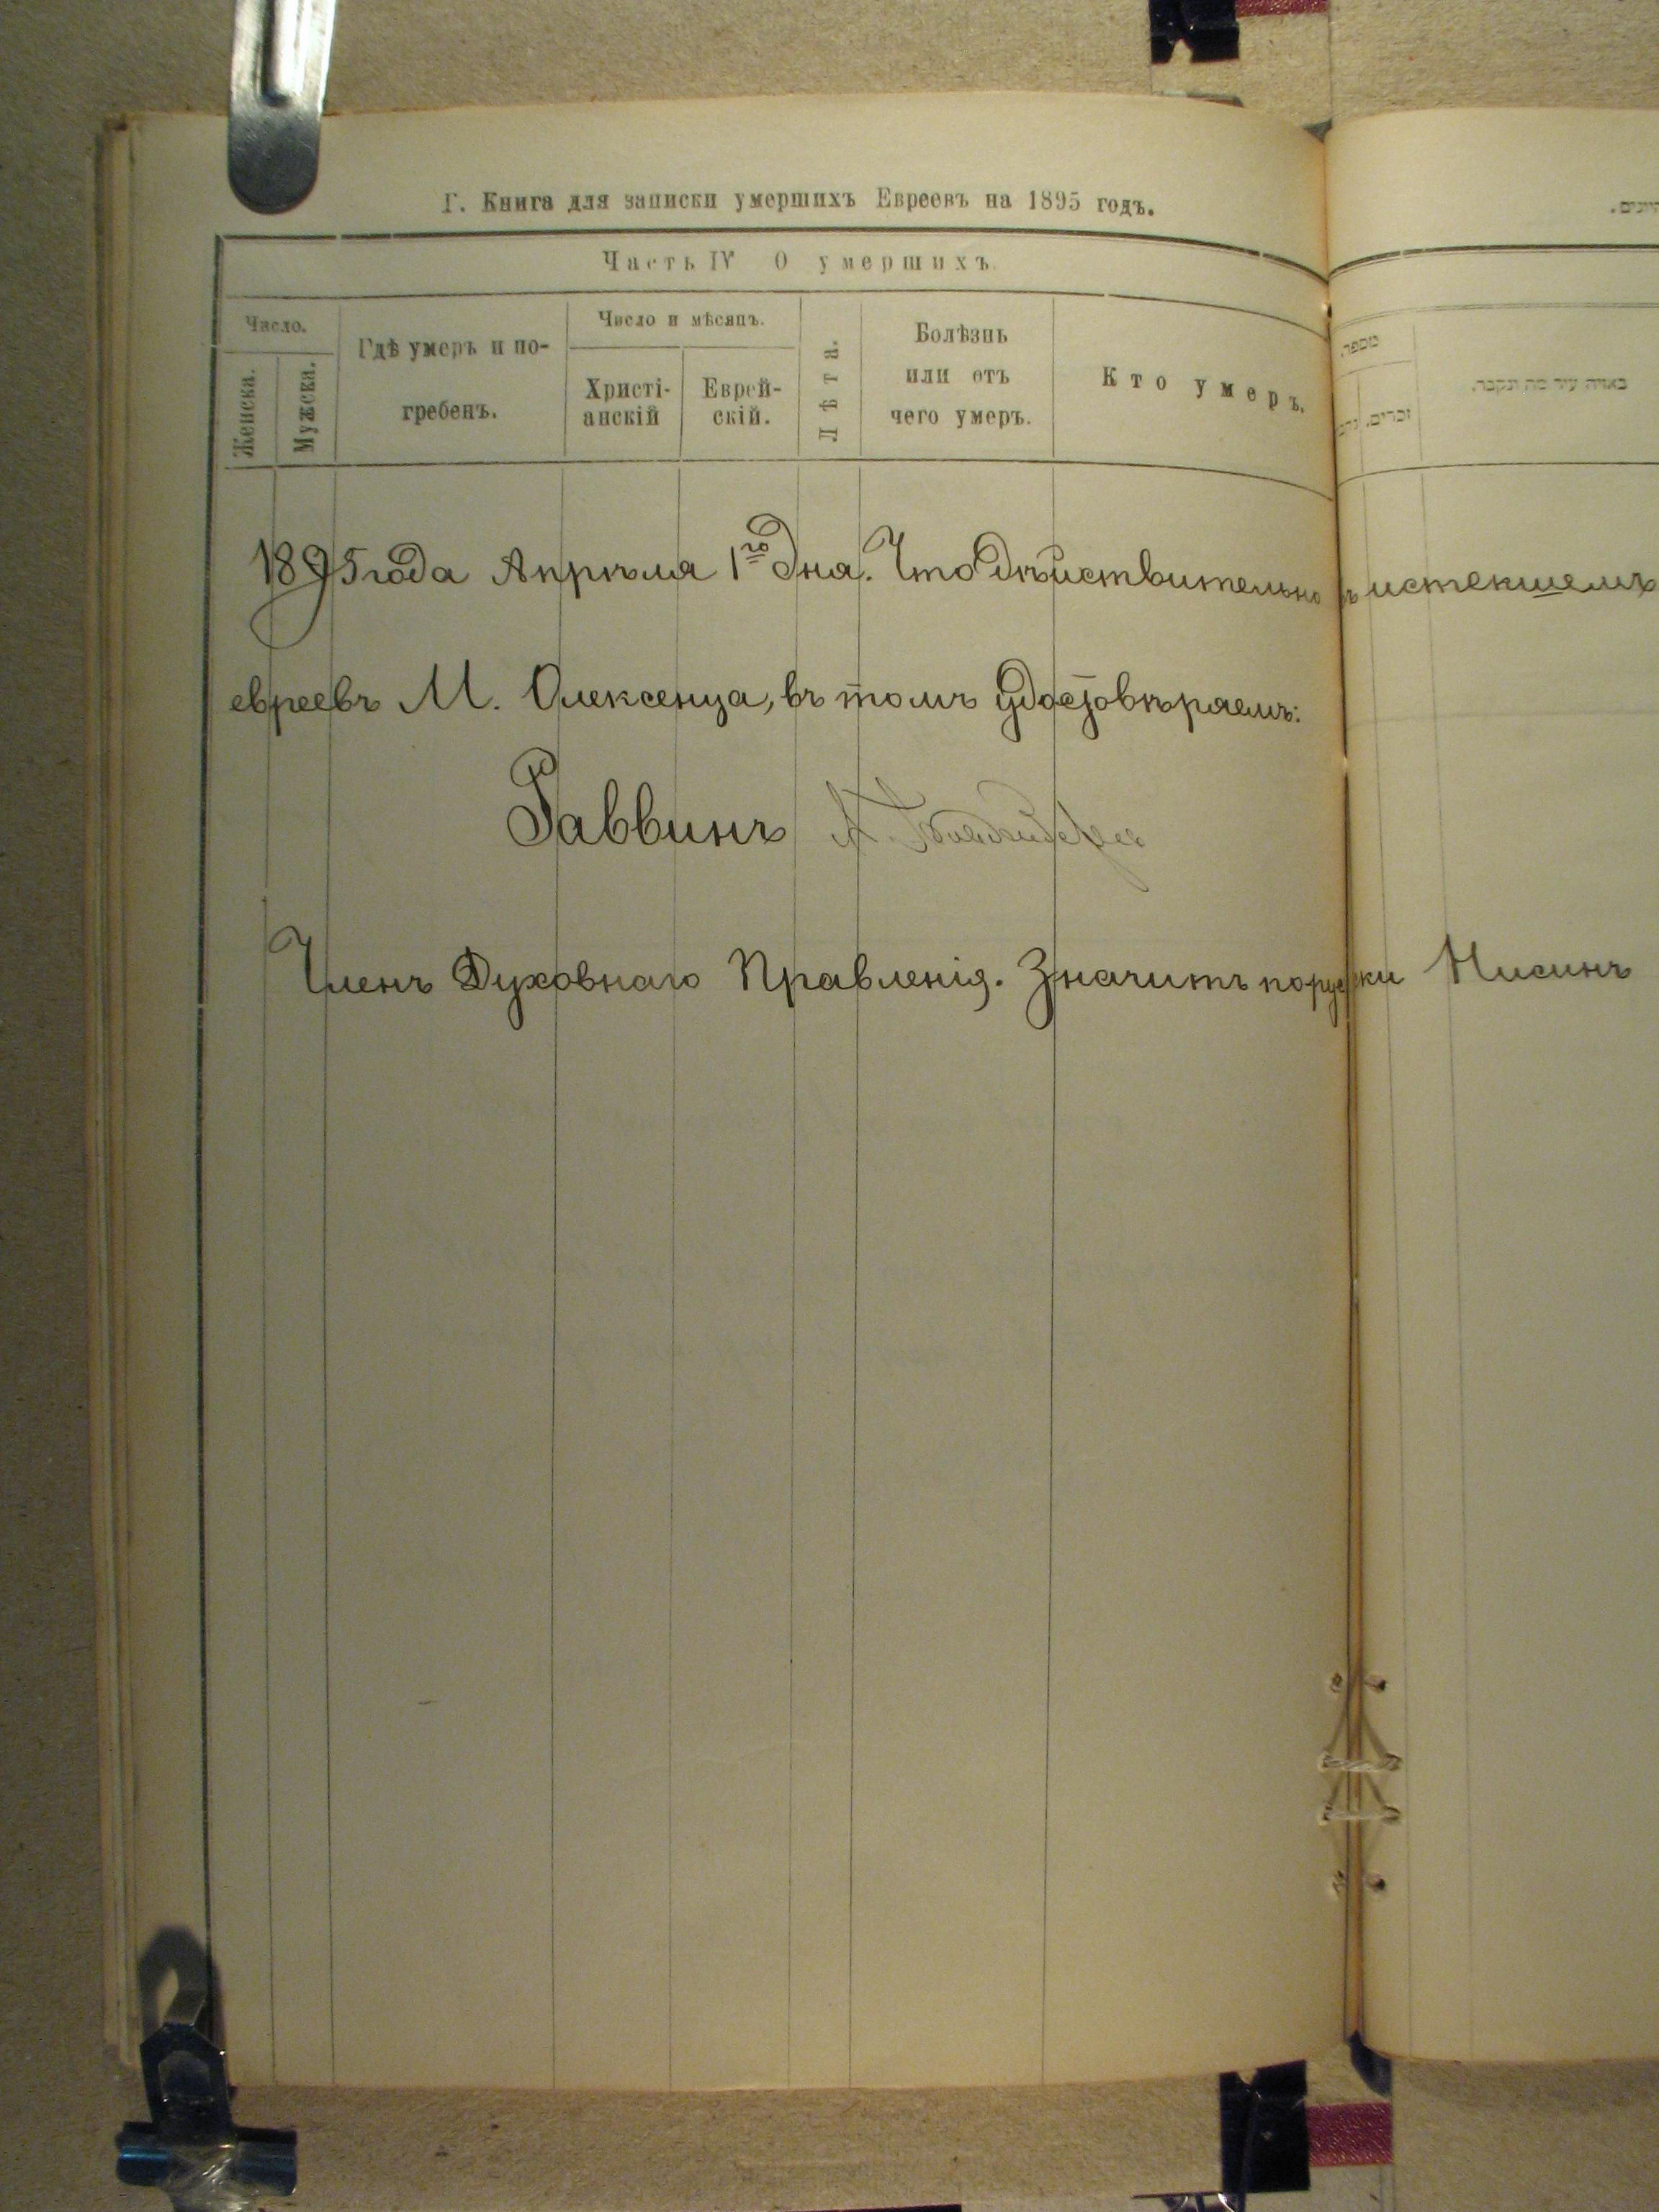 Г. Книга для записки умершихъ Евреевъ на 1895 годъ.
Часть IV О умершихъ.
Число.
Женска.
Мужска.
Гдѣ умеръ и по-
гребенъ.
Число и мѣсяцъ.
Христі-
анскій
Еврей-
скій.
Лѣта.
Болѣзнь
или отъ
чего умеръ.
Кто умеръ.
מספר
זכרים.
באיזה עיר מת ונקבר.
1895 года Апрѣля 1го дня. Что дѣйствительно въ истекшемъ
евреевъ М. Олексенца, въ томъ удостовѣряемъ:
Раввинъ
Членъ Духовнаго Правленія. Значитъ поруски Нисинъ